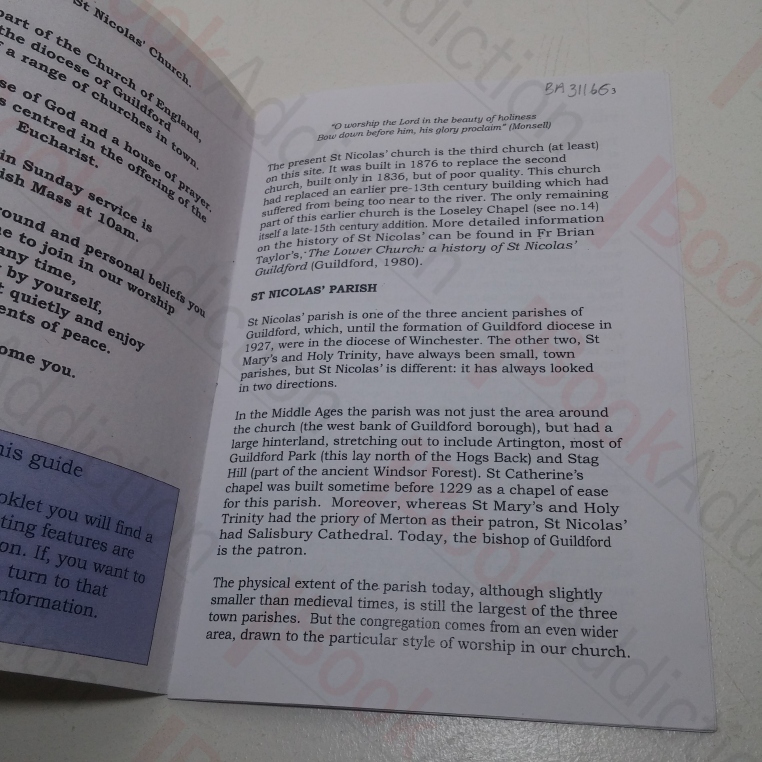 St Nicolas' Church.
part of the Church of England,
the diocese of Guildford
f a range of churches in town.
se of God and a house of prayer.
s centred in the offering of the
Eucharist.
in Sunday service is
ish Mass at 10am.
round and personal beliefs you
e to join in our worship
any time,
by yourself,
t quietly and enjoy
ents of peace.
ome you.
his guide
oklet you will find a
ting features are
on. If, you want to
turn to that
nformation.
BA311663
"O worship the Lord in the beauty of holiness
Bow down before him, his glory proclaim" (Monsell)
The present St Nicolas' church is the third church (at least)
on this site. It was built in 1876 to replace the second
church, built only in 1836, but of poor quality. This church
had replaced an earlier pre-13th century building which had
suffered from being too near to the river. The only remaining
part of this earlier church is the Loseley Chapel (see no.14)
itself a late-15th century addition. More detailed information
on the history of St Nicolas' can be found in Fr Brian
Taylor's, The Lower Church: a history of St Nicolas'
Guildford (Guildford, 1980).
ST NICOLAS' PARISH
St Nicolas' parish is one of the three ancient parishes of
Guildford, which, until the formation of Guildford diocese in
1927, were in the diocese of Winchester. The other two, St
Mary's and Holy Trinity, have always been small, town
parishes, but St Nicolas' is different: it has always looked
in two directions.
In the Middle Ages the parish was not just the area around
the church (the west bank of Guildford borough), but had a
large hinterland, stretching out to include Artington, most of
Guildford Park (this lay north of the Hogs Back) and Stag
Hill (part of the ancient Windsor Forest). St Catherine's
chapel was built sometime before 1229 as a chapel of ease
for this parish. Moreover, whereas St Mary's and Holy
Trinity had the priory of Merton as their patron, St Nicolas'
had Salisbury Cathedral. Today, the bishop of Guildford
is the patron.
The physical extent of the parish today, although slightly
smaller than medieval times, is still the largest of the three
town parishes. But the congregation comes from an even wider
area, drawn to the particular style of worship in our church.